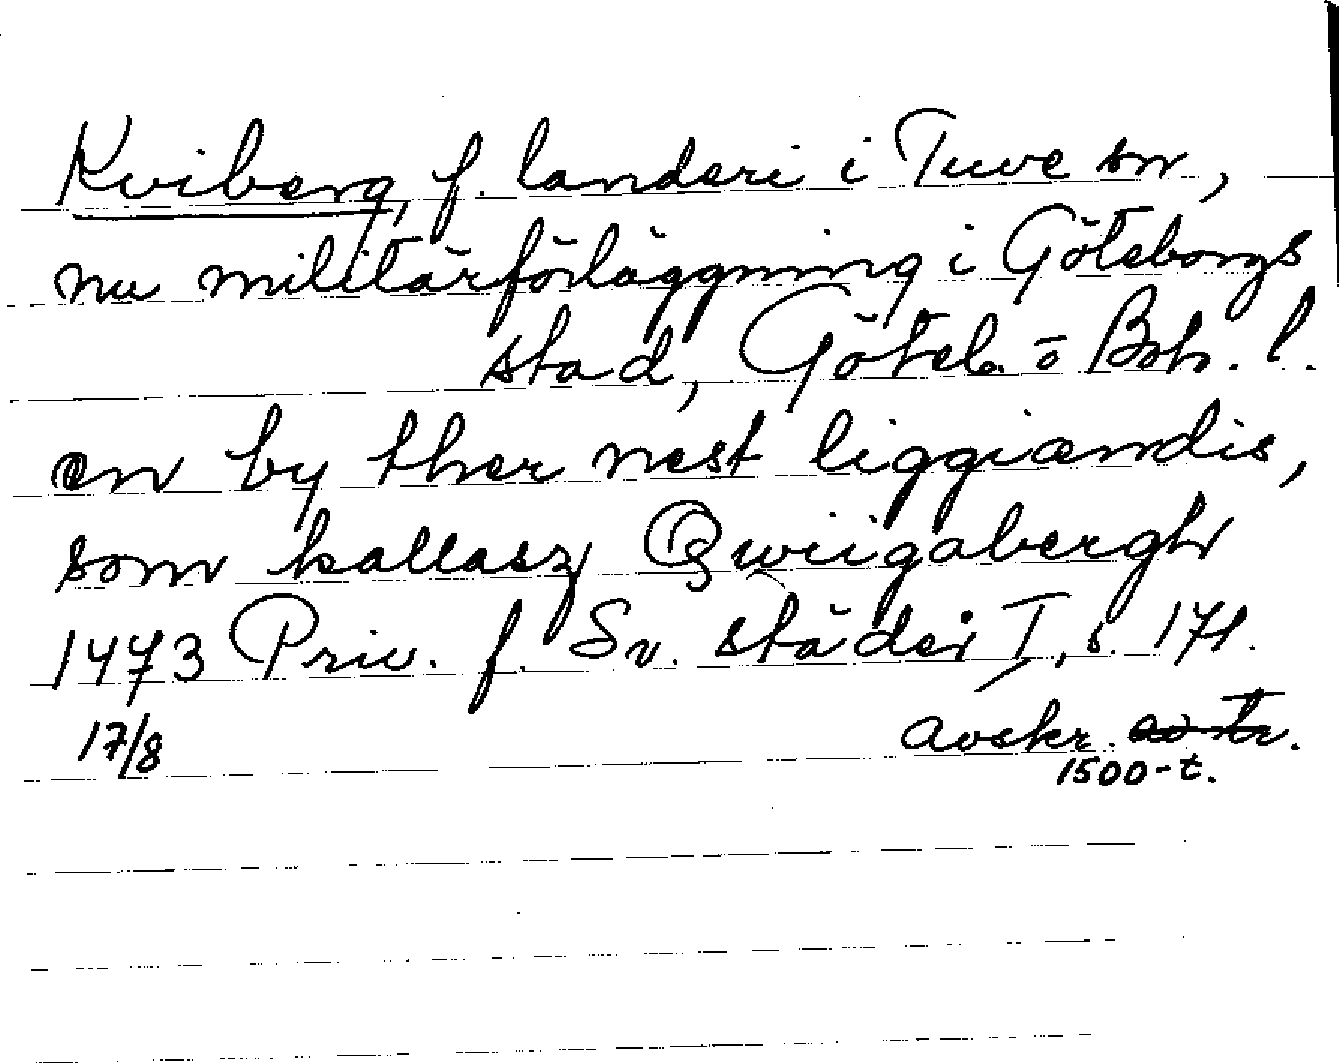 Kviberg, f. landeri i Tuve sn,
nu militärförläggning i Göteborgs
stad, Göteb. o Boh. l.
en by ther nest liggiændis,
som kallasz Qwiigabergh
1473 Priv. f. Sv. städer I, s. 171.
17/8 avskr. av tr.
1500-t.